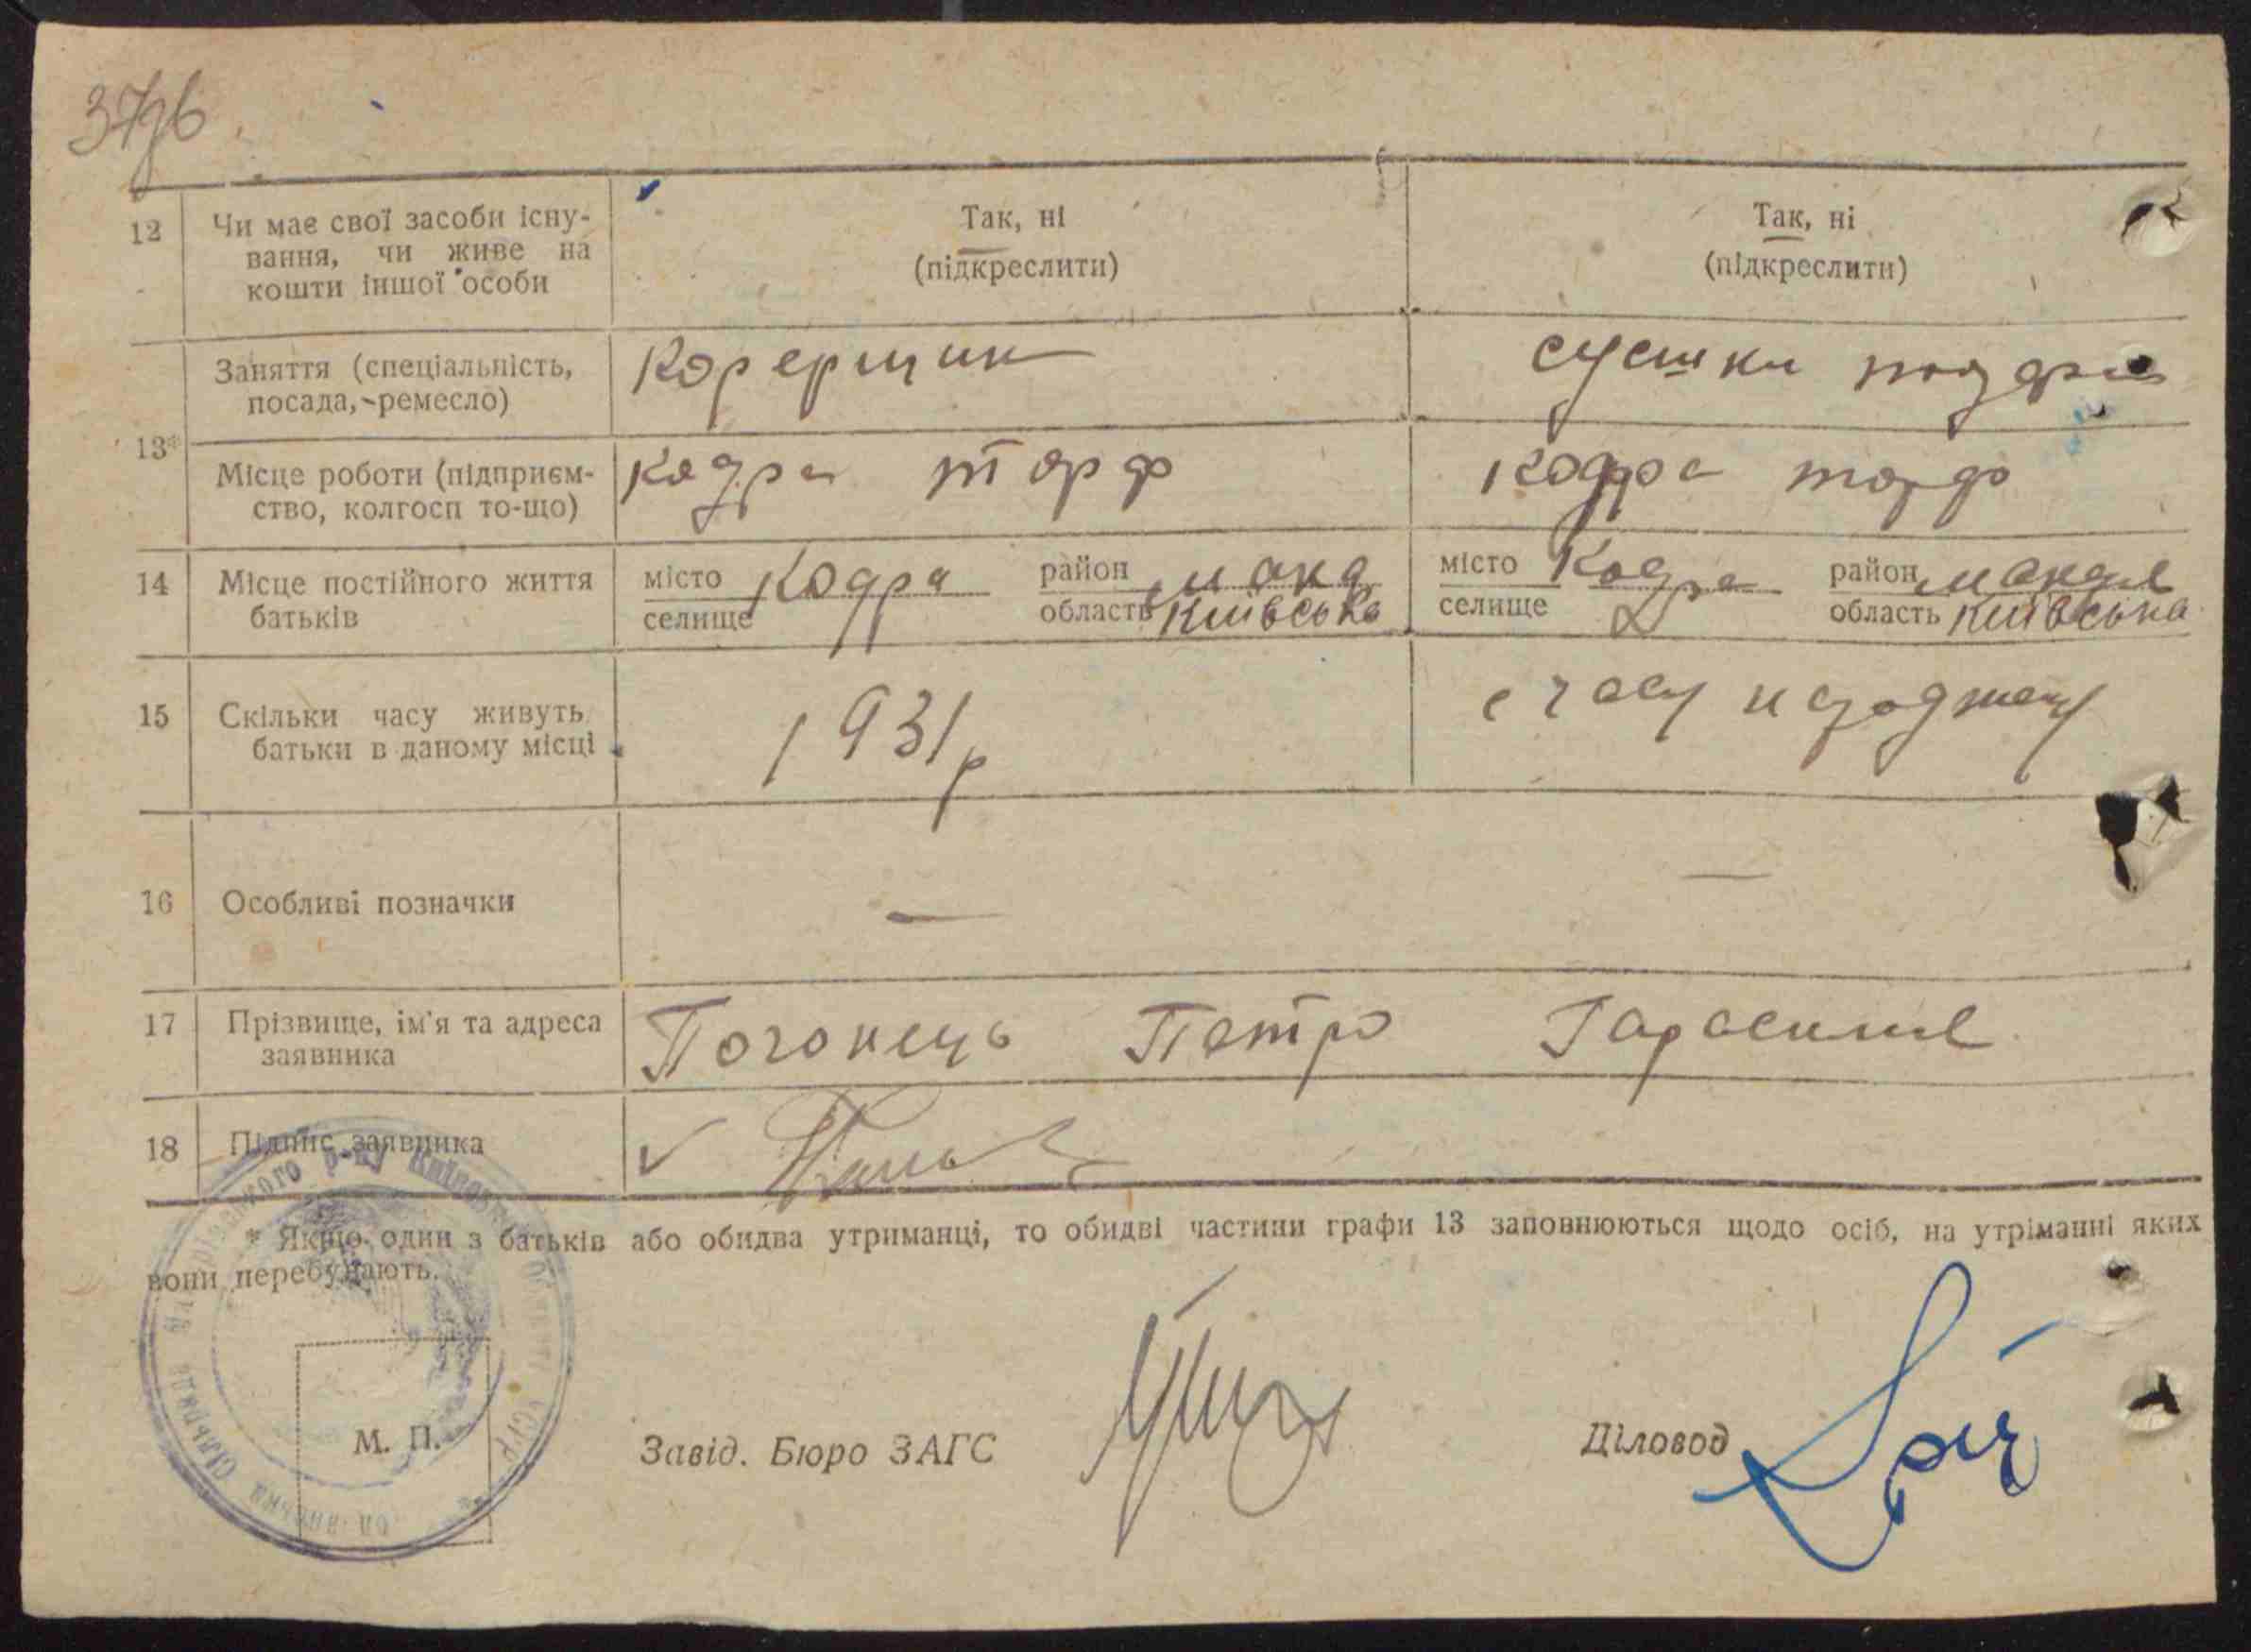 12 Чи має свої засоби існу- Так, ні Так, ні
вання, чи живе на (підкреслити) (підкреслити)
кошти іншої особи
Заняття (спеціальність, сушки
посада, ремесло)
13*
Місце роботи (підприєм- Кодра торф Кодра торф
ство, колгосп то-що)
14 Місце постійного життя місто Кодра район Мака місто Кодра район Макал
батьків селище область Київська селище область Київська
15 Скільки часу живуть 1931р с часу
батьки в даному місці
16 Особливі позначки — —
17 Прізвище, ім'я та адреса Погонець Петро Гарасимов
заявника
18 Підпис заявника
* Якщо один з батьків або обидва утриманці, то обидві частини графи 13 заповнюються щодо осіб, на утріманні яких
вони перебувають.
М. П. Завід. Бюро ЗАГС Діловод